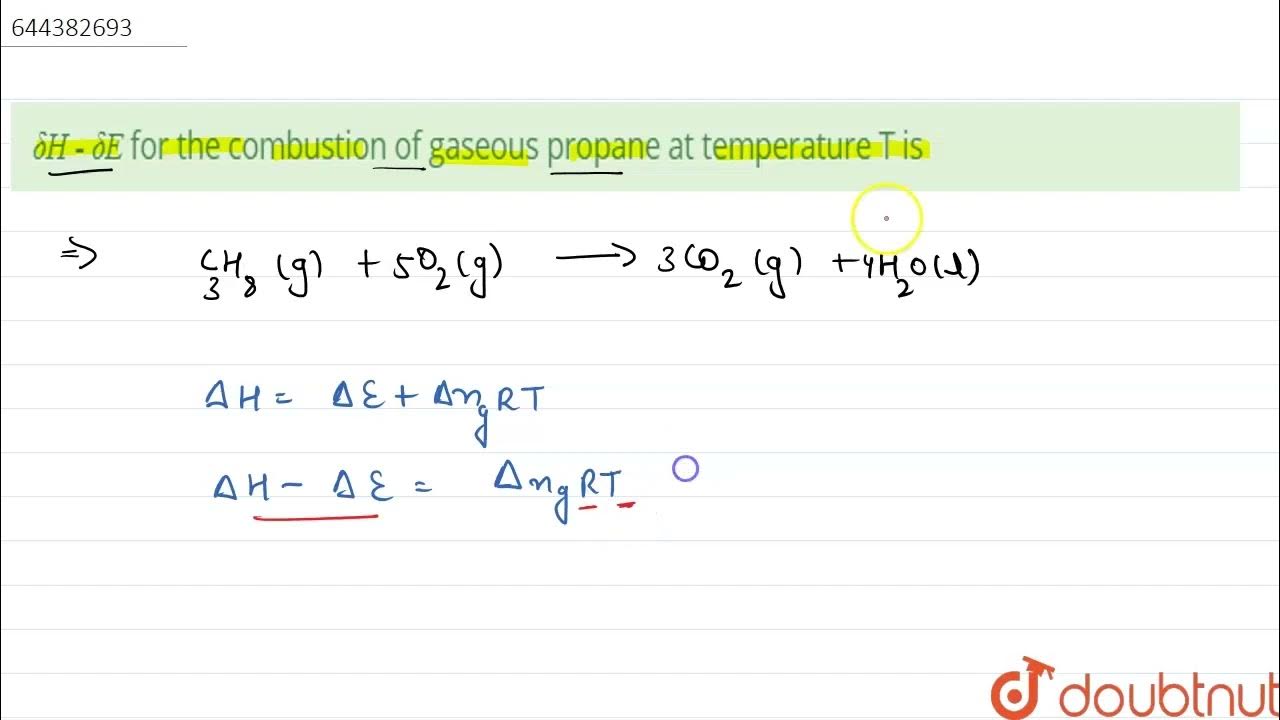 644382693
δH - δE for the combustion of gaseous propane at temperature T is
⇒ C₃H₈ (g) + 5O₂ (g) ⟶ 3CO₂ (g) + 4H₂O(l)
ΔH = ΔE + Δn_gRT
ΔH - ΔE = Δn_gRT
doubtnut